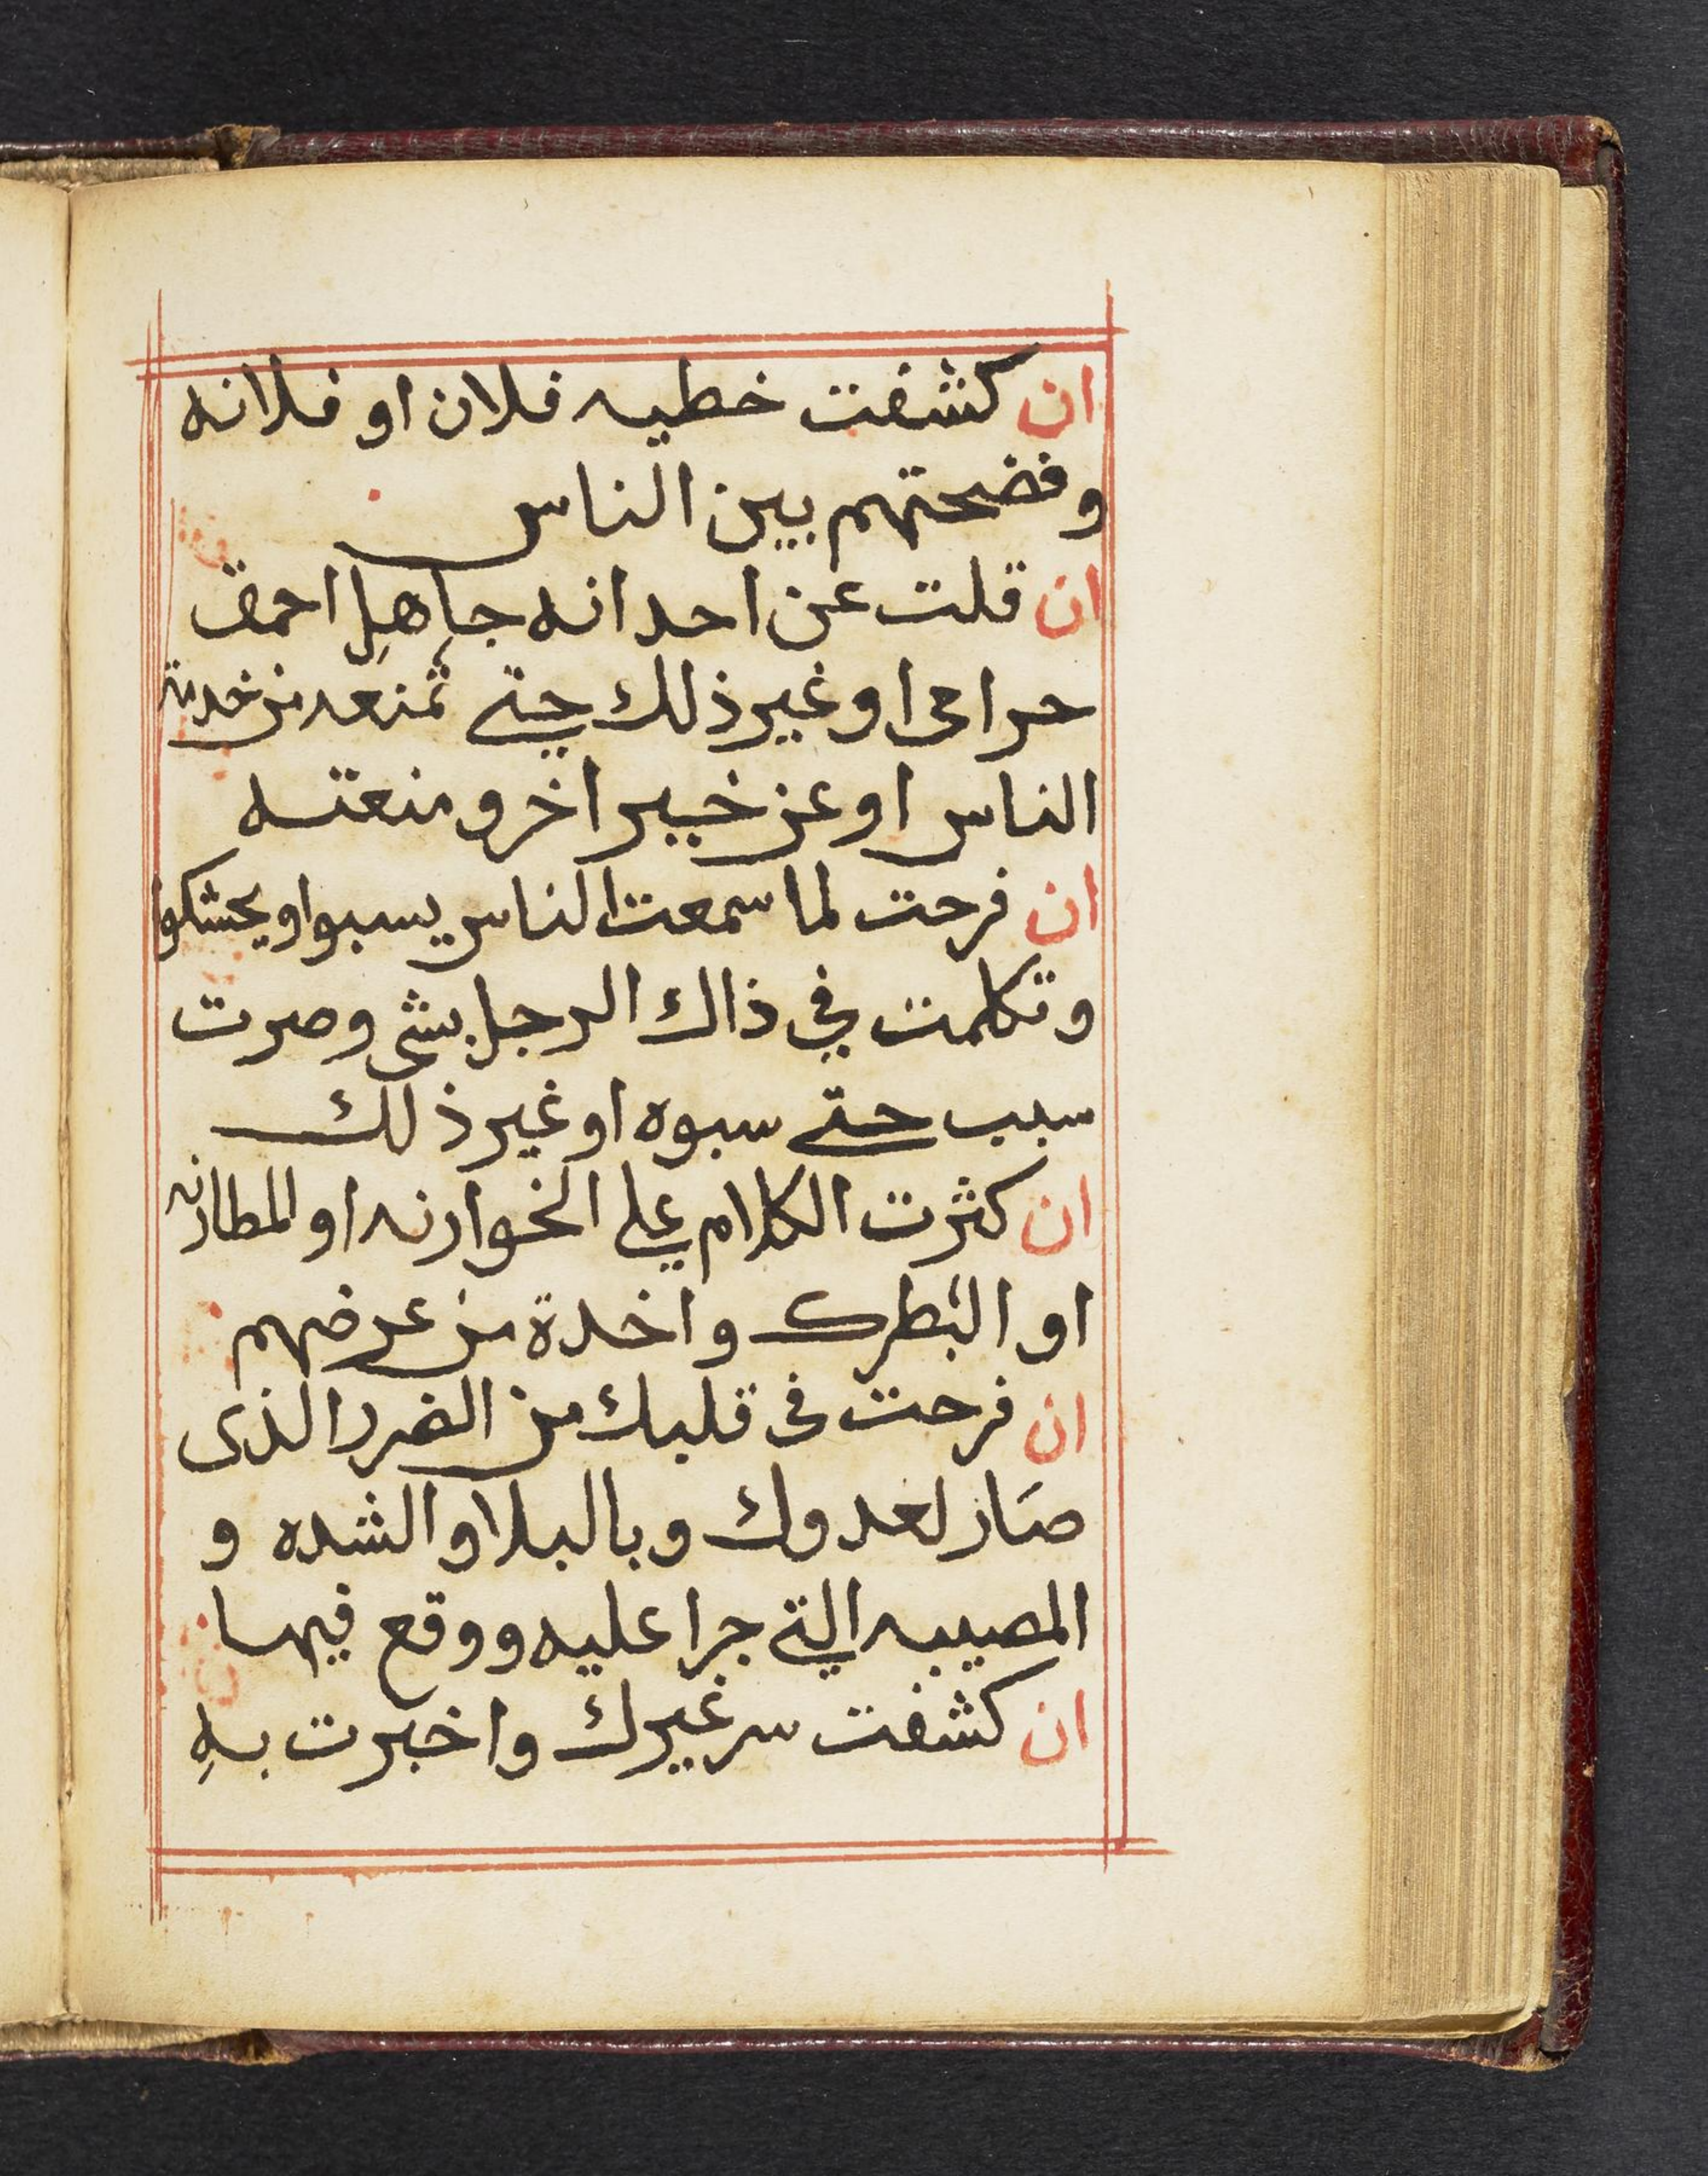 ان كشفت خطيه فلان او فلانه
وفضحتهم بين الناس
ان قلت عن احد انه جاهل احمق
حرامى او غير ذلك حتى تمنعه من خدمة
الناس او عن خير اخر ومنعته
ان فرحت لما سمعت الناس يسبوا او يحشكوا
وتكلمت في ذاك الرجل بشى وصرت
سبب حتى سبوه او غير ذلك
ان كثرت الكلام على الخوارنه او المطارنه
او البطرك واخدة من عرضهم
ان فرحت فى قلبك من الضرر الذى
صَار لعدوك وبالبلا والشده و
المصيبه التي جرا عليه ووقع فيها
ان كشفت سر غيرك واخبرت بهِ